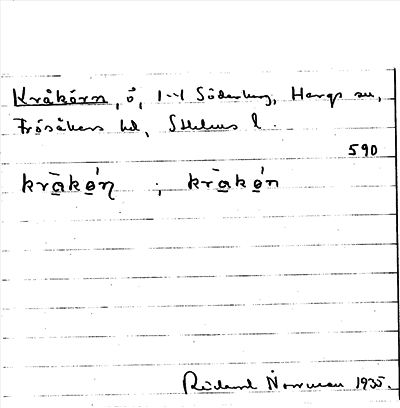 Kråkörn, ö, 1-1 Söderberg, Hargs sn,
Frösåkers hd, Sthlms l.
590
kràkǿn ; kràkǿn
Rickard Norrman 1935.